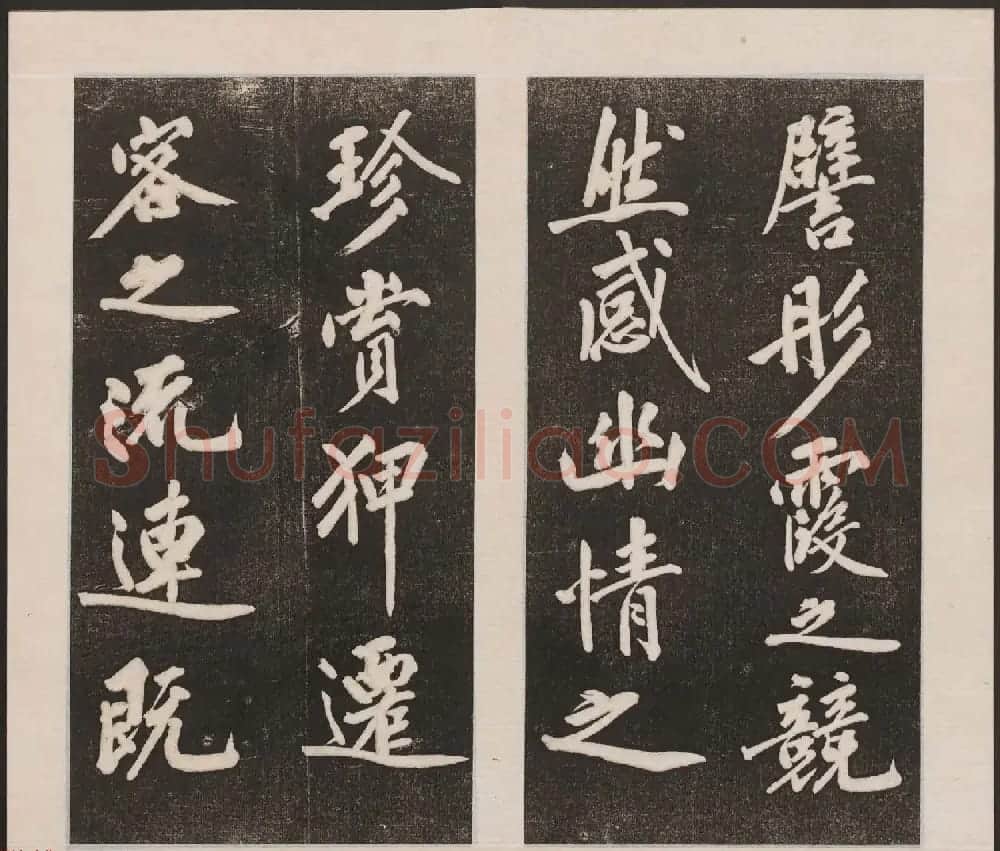 譬彤霞之競
然感幽情之
珍賞狎遷
客之流連既
Shufaziliao.COM